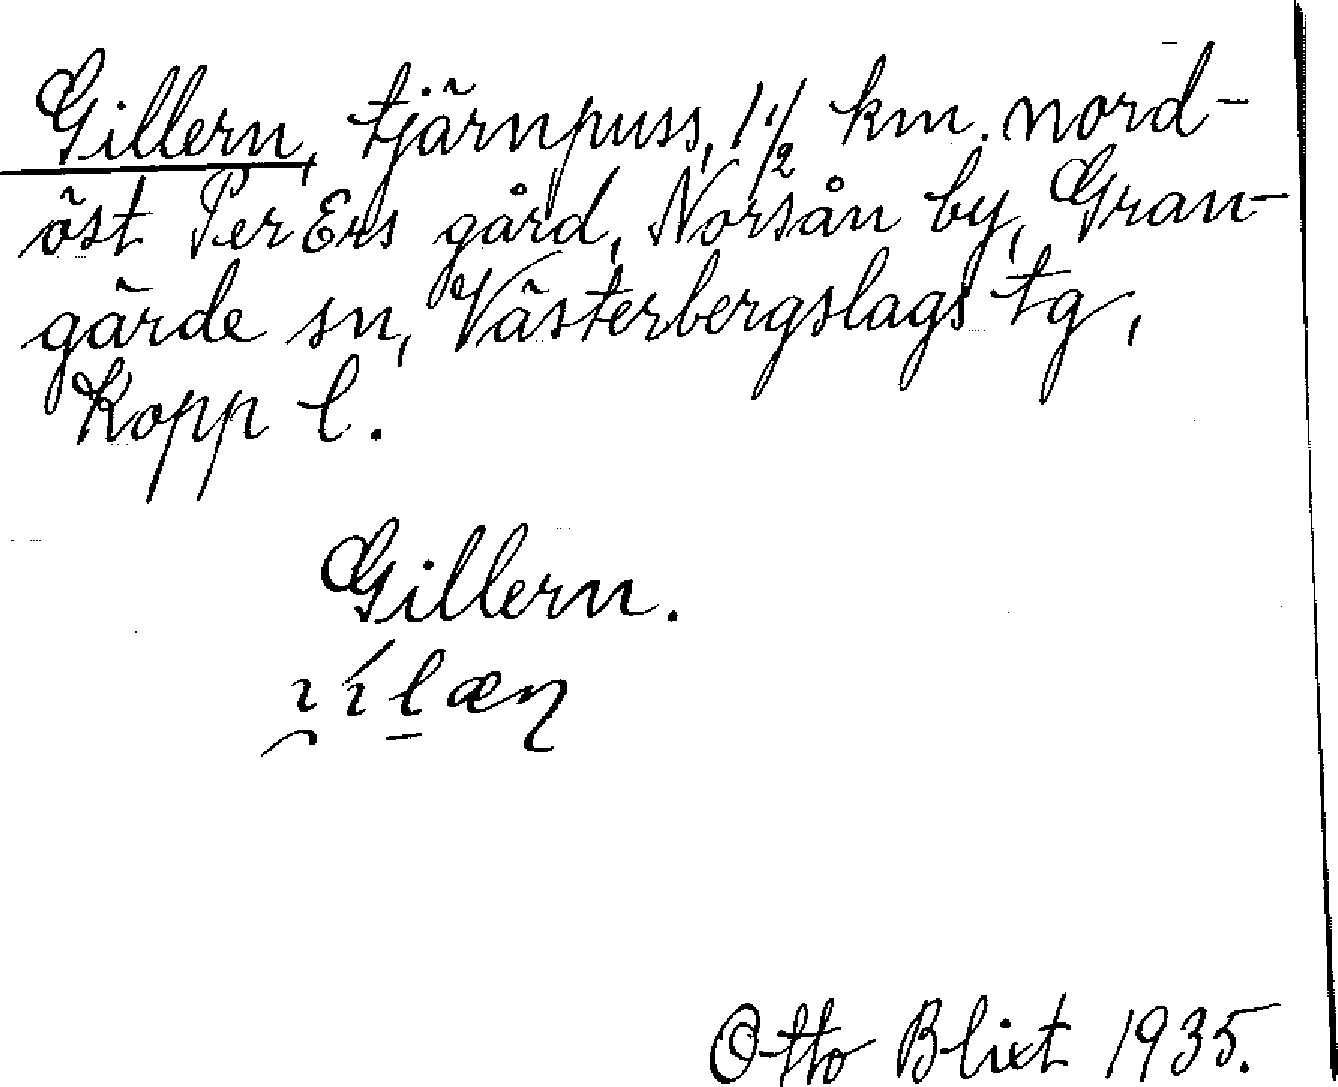 Gillern, tjärnpuss, 1 1/2 km. nord-
öst Per Ers gård, Norsån by, Gran-
gärde sn, Västerbergslags tg,
Kopp l.
Gillern.
Otto Blixt 1935.